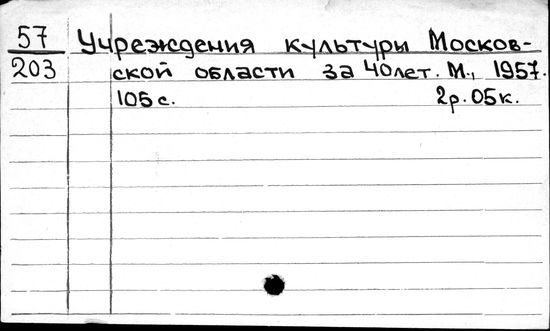 57 Учреждения культуры Москов-
203 ской области за 40 лет. М., 1957.
105 с. 2р. 05к.